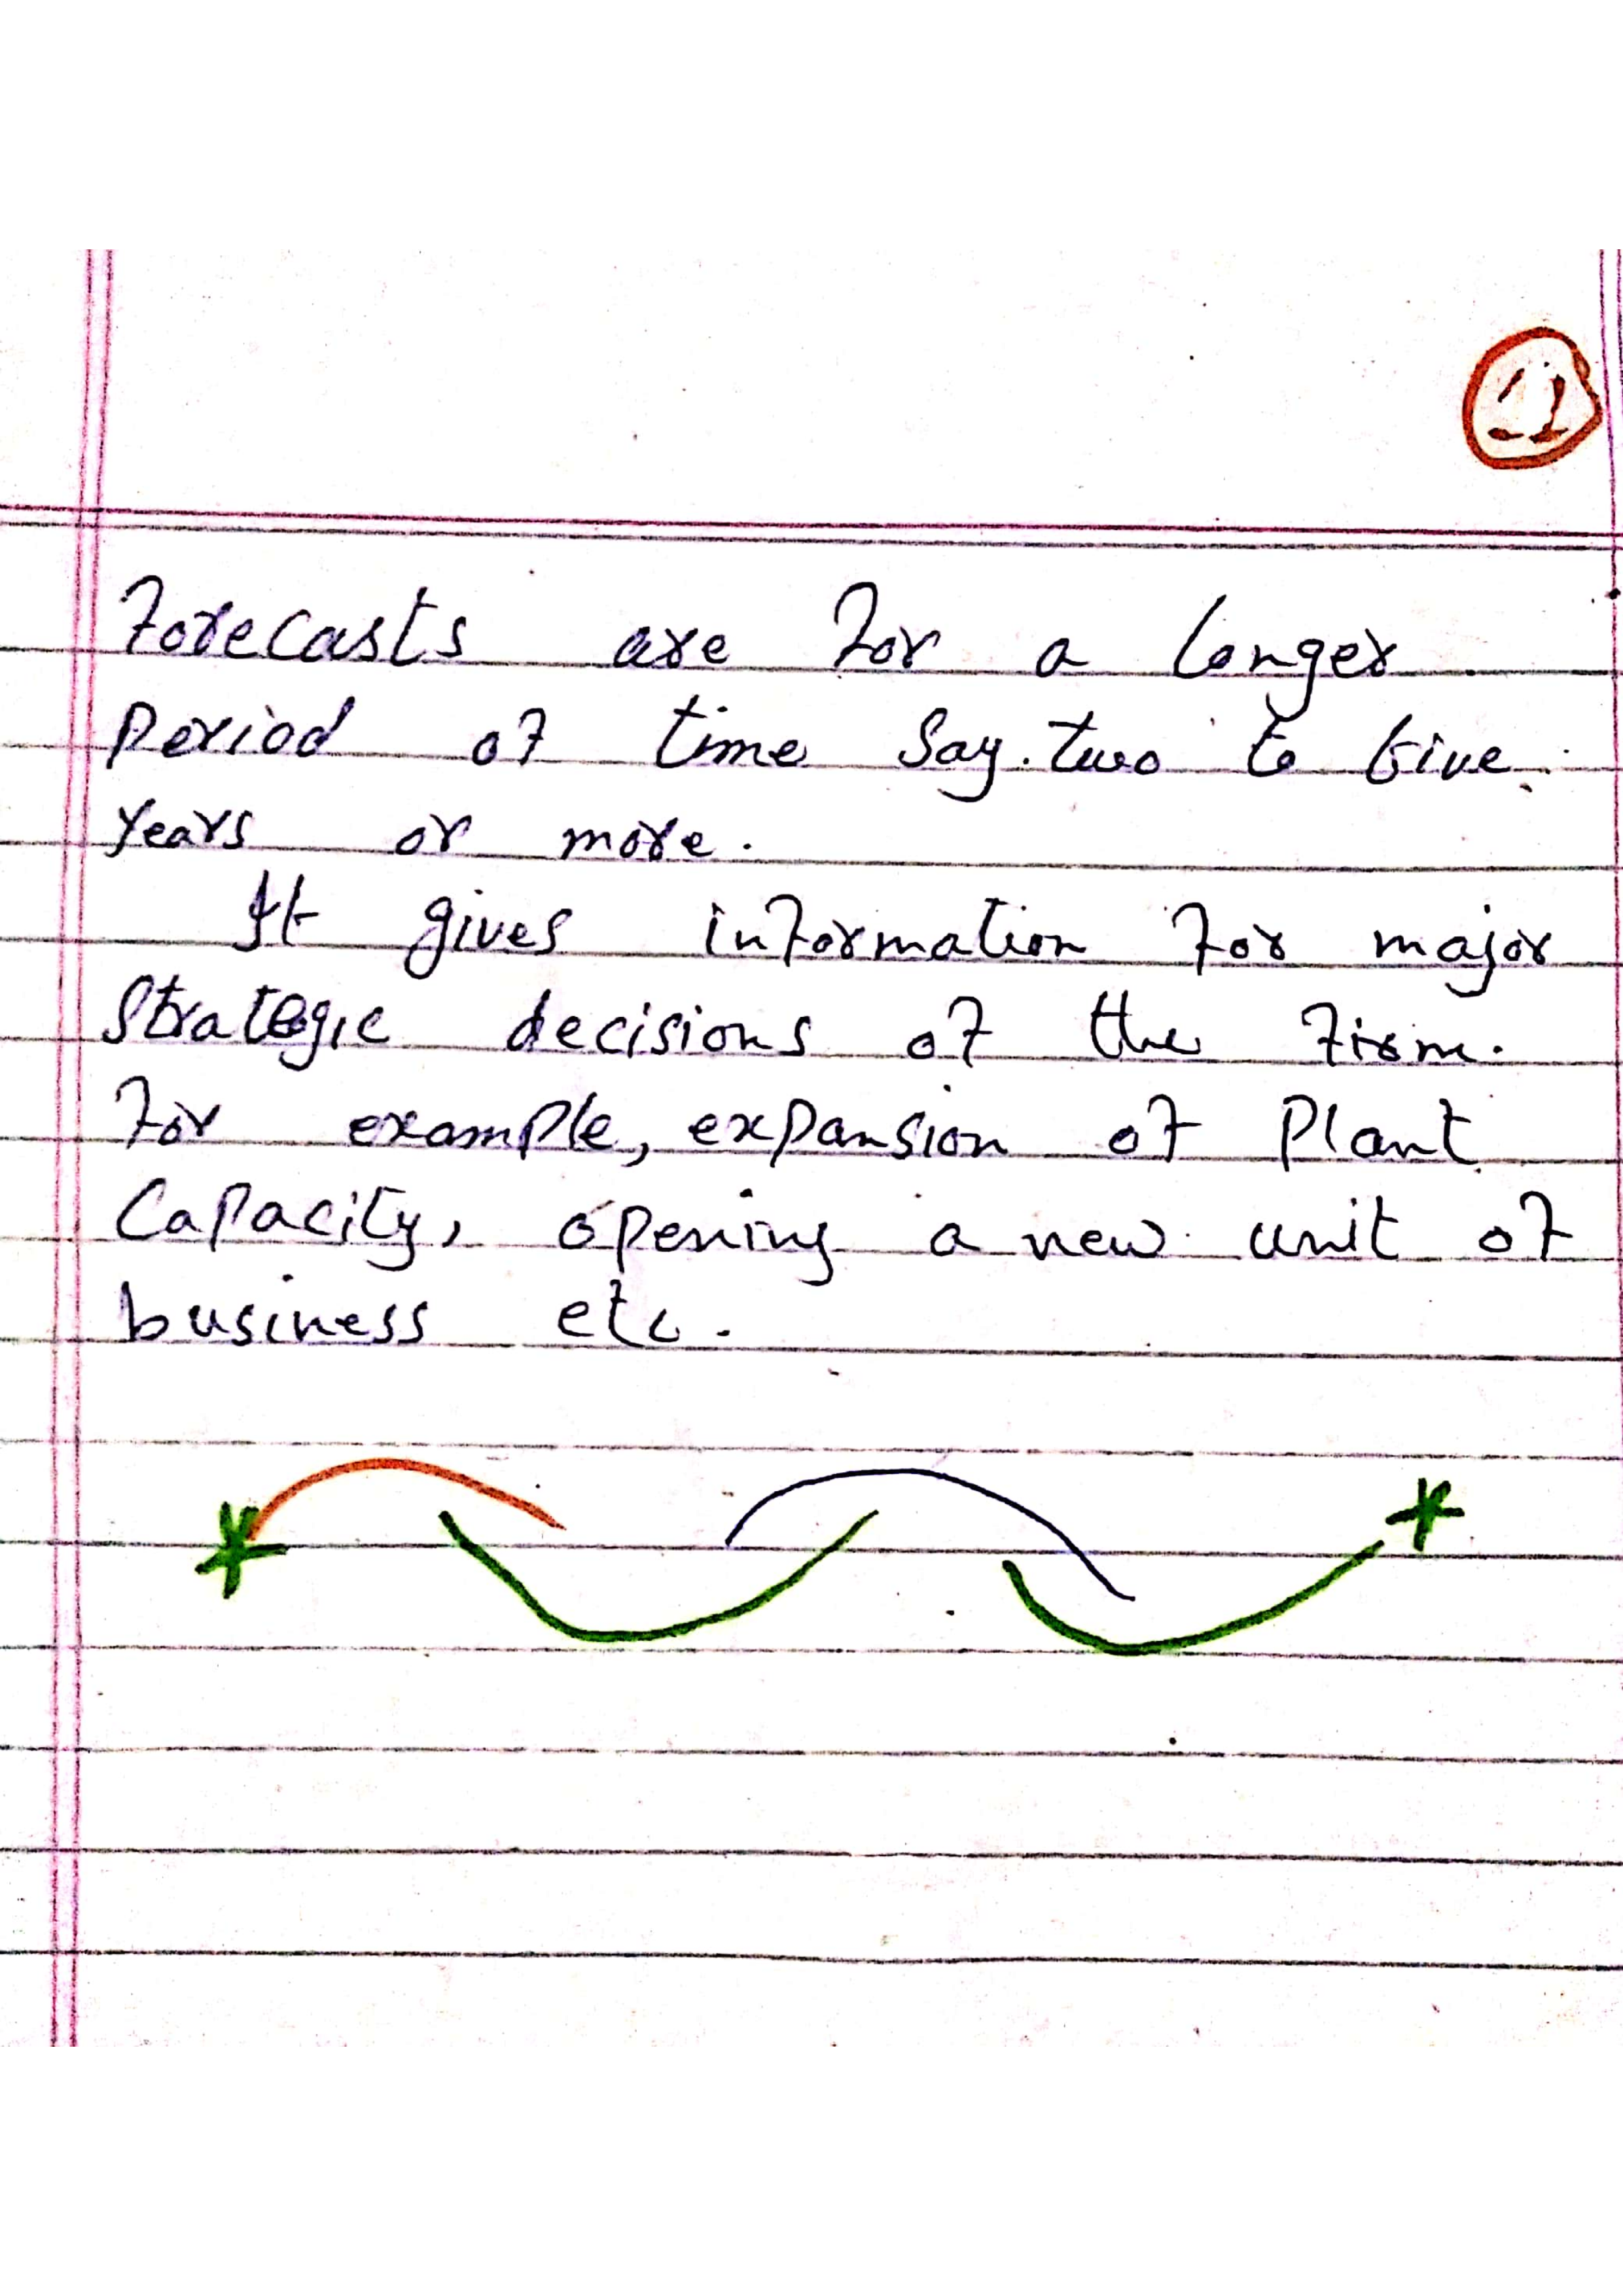 11
Forecasts are for a longer
Period of time say two to five
years or more.
It gives information for major
Strategic decisions of the firm.
For example, expansion of Plant
Capacity, opening a new unit of
business etc.